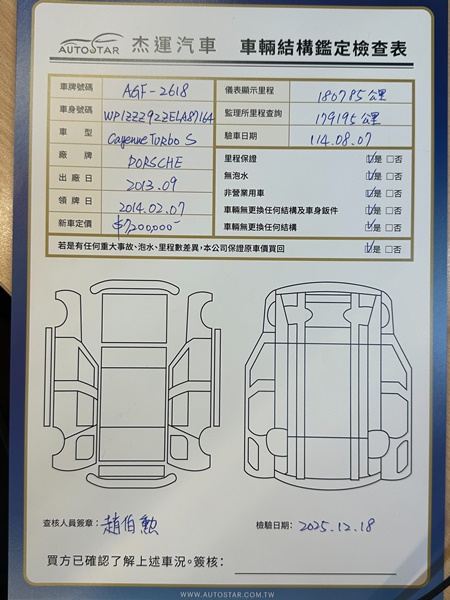 AUTOSTAR 杰運汽車 車輛結構鑑定檢查表
車牌號碼 AGF-2618
車身號碼 WP1ZZZ92ZELA87164
車型 Cayenne Turbo S
廠牌 PORSCHE
出廠日 2013.09
領牌日 2014.02.07
新車定價 $7,200,000-
儀表顯示里程 180785公里
監理所里程查詢 179195公里
驗車日期 114.08.07
里程保證 ☑是 □否
無泡水 ☑是 □否
非營業用車 ☑是 □否
車輛無更換任何結構及車身鈑件 ☑是 □否
車輛無更換任何結構 ☑是 □否
若是有任何重大事故、泡水、里程數差異,本公司保證原車價買回 ☑是 □否
查核人員簽章: 趙伯勳
檢驗日期: 2025.12.18
買方已確認了解上述車況。簽核:
WWW.AUTOSTAR.COM.TW